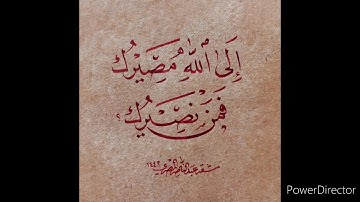 إِلَى ٱللَّهِ مَصِيْرُكَ
فَمَنْ نَصِيْرُكَ؟
١٤٤٢
PowerDirector